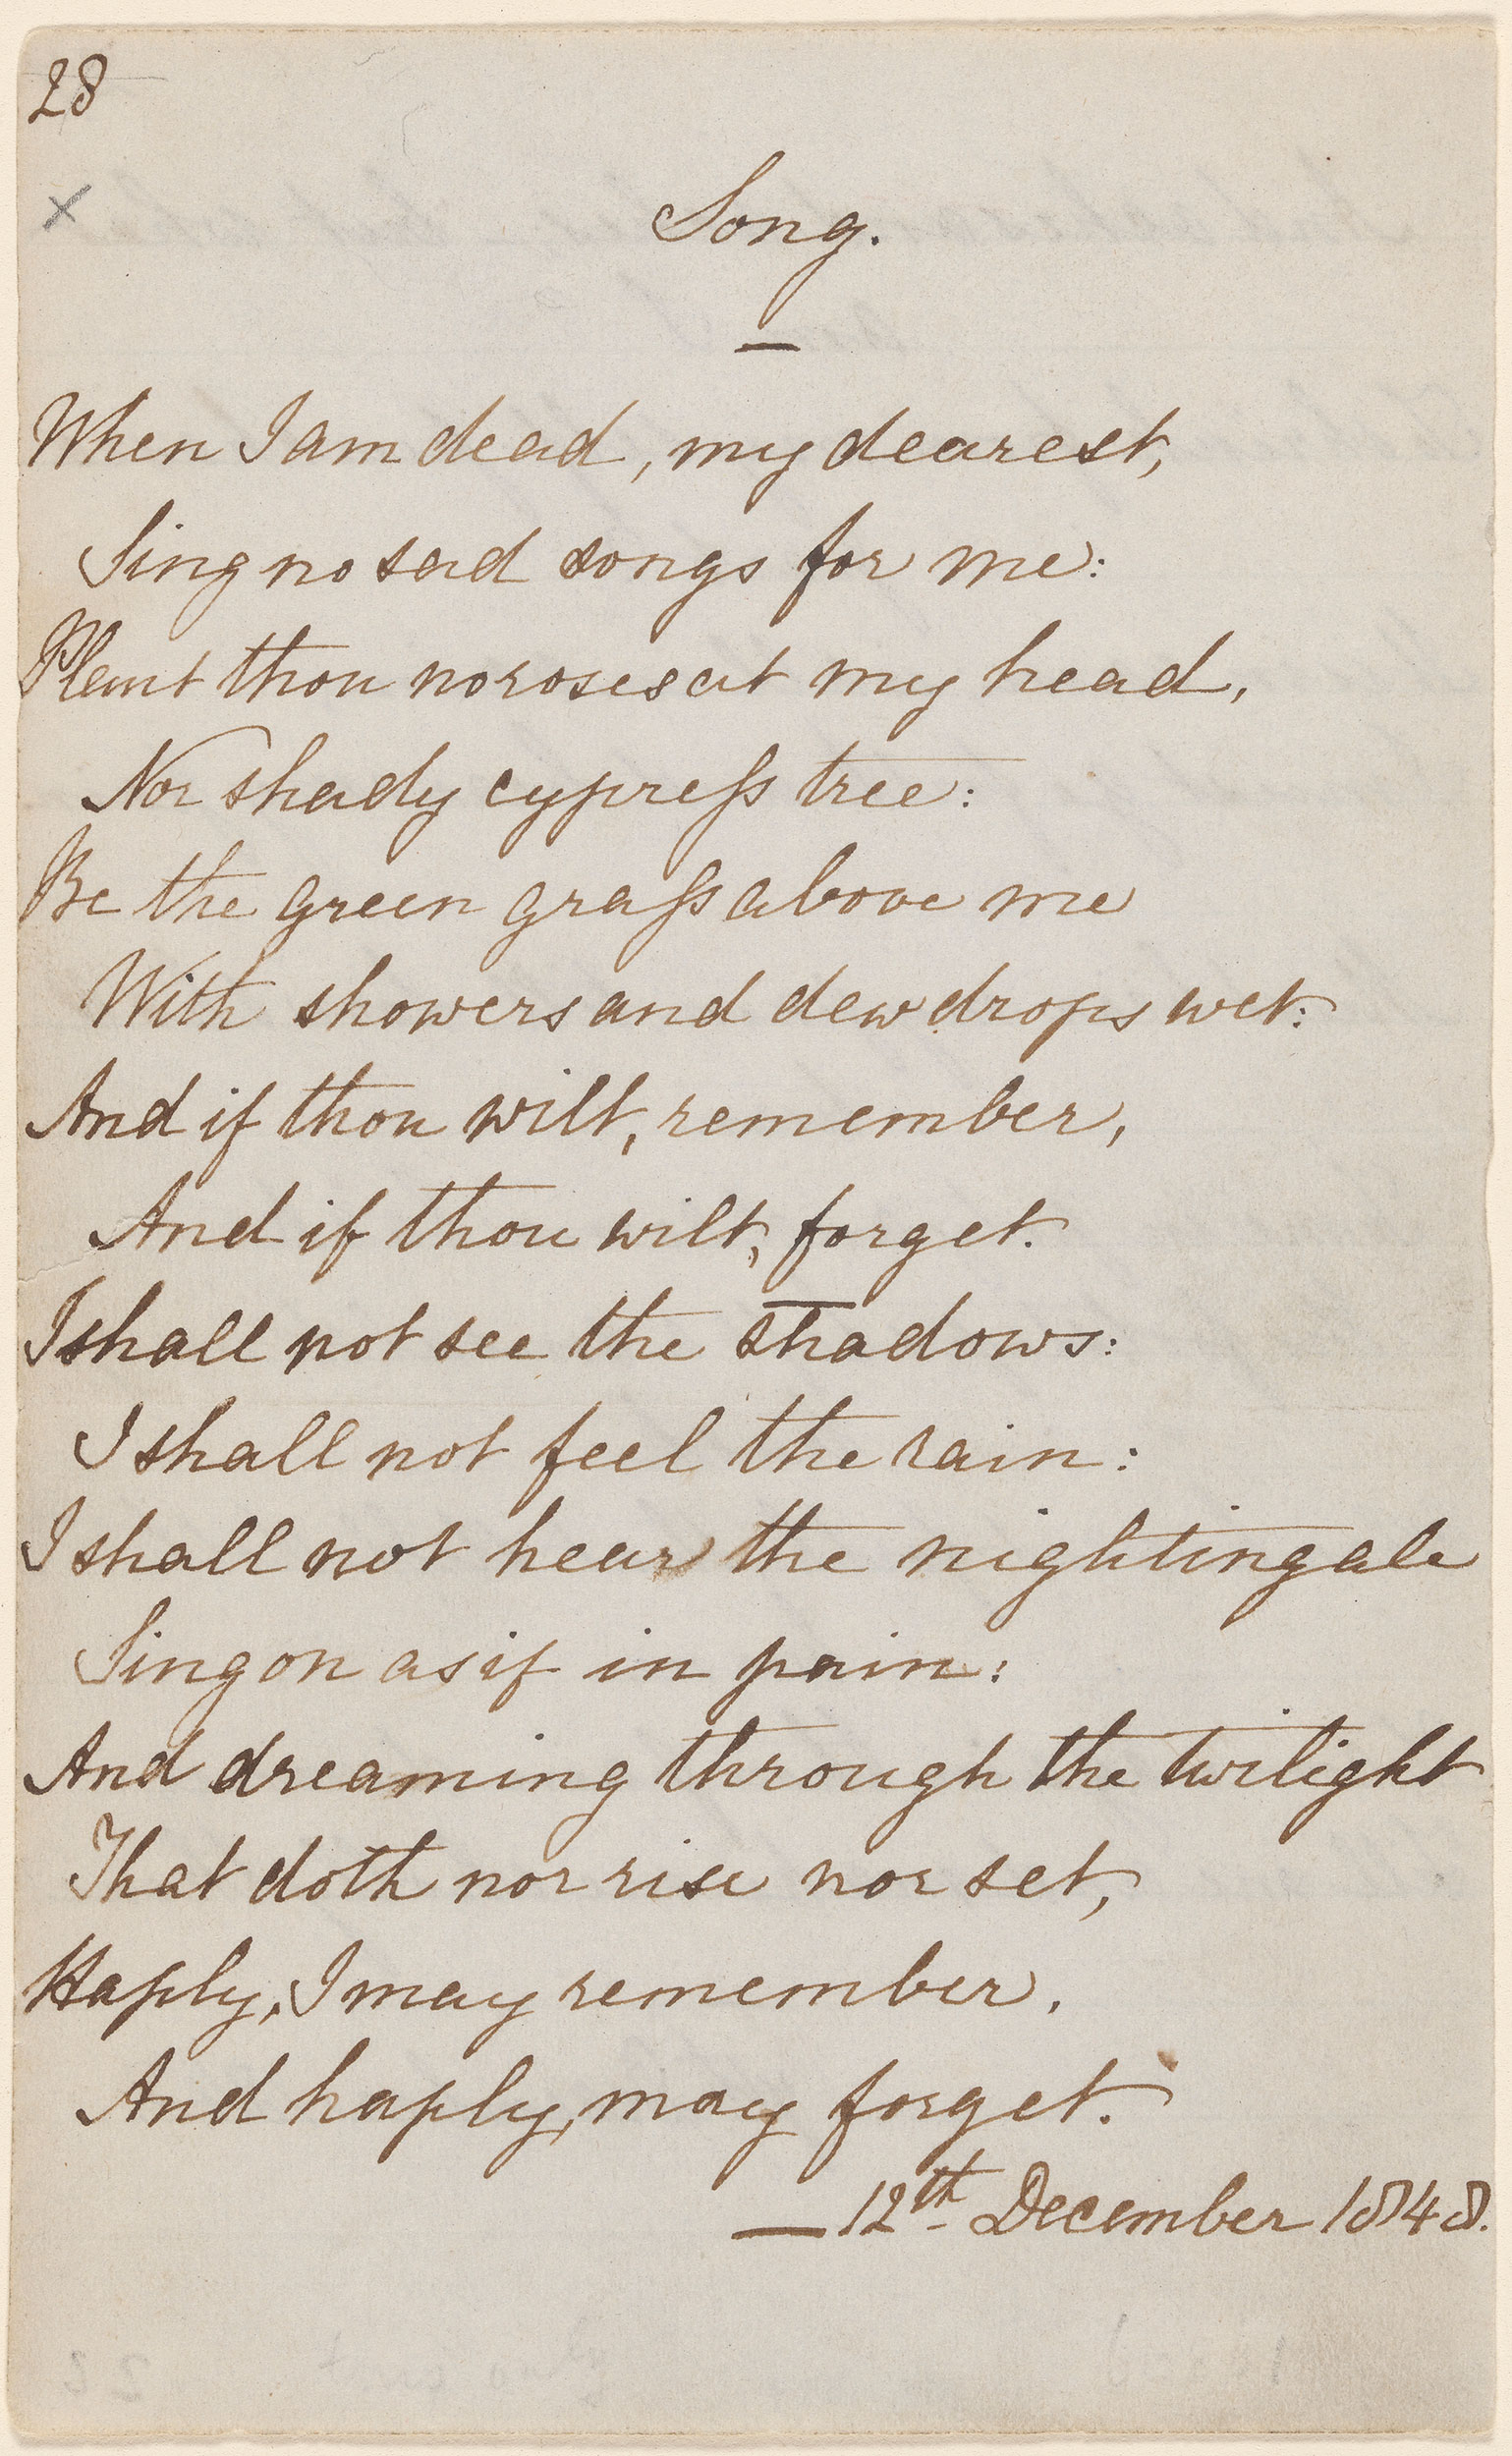 28
x
Song.
—
When I am dead, my dearest,
Sing no sad songs for me:
Plant thou no roses at my head,
Nor shady cypreſs tree:
Be the green graſs above me
With showers and dewdrops wet:
And if thou wilt, remember,
And if thou wilt, forget.
—
I shall not see the shadows:
I shall not feel the rain:
I shall not hear the nightingale
Sing on as if in pain:
And dreaming through the twilight
That doth nor rise nor set,
Haply, I may remember,
And haply, may forget.
— 12th December 1848.